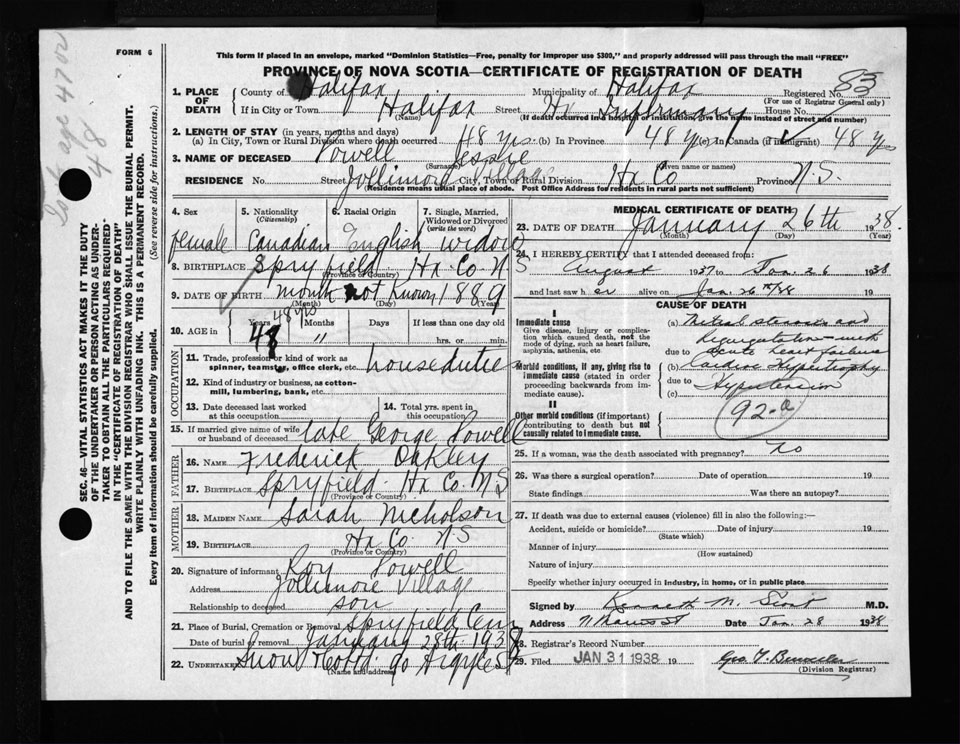 FORM 6
This form if placed in an envelope, marked "Dominion Statistics—Free, penalty for improper use $300," and properly addressed will pass through the mail "FREE"
PROVINCE OF NOVA SCOTIA—CERTIFICATE OF REGISTRATION OF DEATH
83
1. PLACE OF DEATH
County of Halifax Municipality of Halifax Registered No.
(For use of Registrar General only)
If in City or Town Halifax Street Hx Infirmary House No.
(Name) (If death occurred in a hospital or institution give the name instead of street and number)
2. LENGTH OF STAY (in years, months and days)
(a) In City, Town or Rural Division where death occurred 48 yrs (b) In Province 48 yrs (c) In Canada (if immigrant) 48 yrs
3. NAME OF DECEASED Powell Jessie
(Surname) (Given name or names)
RESIDENCE No. Street Jollimore Village City, Town or Rural Division Hx Co Province N.S.
(Residence means usual place of abode. Post Office Address for residents in rural parts not sufficient)
4. Sex 5. Nationality (Citizenship) 6. Racial Origin 7. Single, Married, Widowed or Divorced (write the word)
female Canadian English widow
8. BIRTHPLACE Spryfield Hx. Co. N S
(Province or Country)
9. DATE OF BIRTH month not Known 1889
(Month) (Day) (Year)
10. AGE in Years Months Days If less than one day old
48 yrs
48 " hrs. or min.
OCCUPATION
11. Trade, profession or kind of work as spinner, teamster, office clerk, etc. housedutie
12. Kind of industry or business, as cotton-mill, lumbering, bank, etc.
13. Date deceased last worked at this occupation
14. Total yrs. spent in this occupation
15. If married give name of wife or husband of deceased late George Powell
FATHER
16. NAME Frederick Oakley
17. BIRTHPLACE Spryfield Hx Co. N S
(Province or Country)
MOTHER
18. MAIDEN NAME Sarah Nicholson
19. BIRTHPLACE Hx Co N S
(Province or Country)
20. Signature of informant Roy Powell
Address Jollimore Village
Relationship to deceased son
21. Place of Burial, Cremation or Removal Spryfield Cem
Date of burial or removal January 28th 1938
22. UNDERTAKER Snow & Co Ltd. 90 Argyle St
(Name and address)
MEDICAL CERTIFICATE OF DEATH
23. DATE OF DEATH January 26th 1938.
(Month) (Day) (Year)
24. I HEREBY CERTIFY that I attended deceased from:
August 1937 to Jan. 26 1938
and last saw her alive on Jan. 26th/38
CAUSE OF DEATH
I
Immediate cause
Give disease, injury or complication which caused death, not the mode of dying, such as heart failure, asphyxia, asthenia, etc
(a) Mitral stenosis and
regurgitation—with
due to acute heart failure
Morbid conditions, if any, giving rise to immediate cause (stated in order of proceeding backwards from immediate cause).
(b) Cardiac Hypertrophy
due to Hypertension
(c)
II
Other morbid conditions (if important) contributing to death but not causally related to immediate cause.
92-a
25. If a woman, was the death associated with pregnancy? no
26. Was there a surgical operation? Date of operation 19
State findings Was there an autopsy?
27. If death was due to external causes (violence) fill in also the following:—
Accident, suicide or homicide? Date of injury 193
(State which)
Manner of injury
(How sustained)
Nature of injury
Specify whether injury occurred in industry, in home, or in public place
Signed by Kenneth M. M.D.
Address Date Jan. 28 1938
28. Registrar's Record Number
29. Filed JAN 31 1938 19
(Division Registrar)
SEC. 46—VITAL STATISTICS ACT MAKES IT THE DUTY
OF THE UNDERTAKER OR PERSON ACTING AS UNDER-
TAKER TO OBTAIN ALL THE PARTICULARS REQUIRED
IN THE "CERTIFICATE OF REGISTRATION OF DEATH"
AND TO FILE THE SAME WITH THE DIVISION REGISTRAR WHO SHALL ISSUE THE BURIAL PERMIT.
WRITE PLAINLY WITH UNFADING INK. THIS IS A PERMANENT RECORD.
Every item of information should be carefully supplied. (See reverse side for instructions.)
48